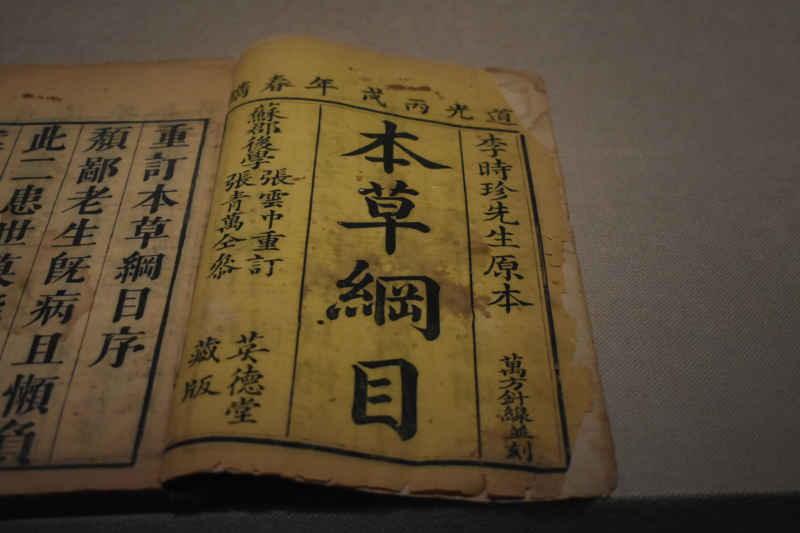 道光丙戌年春
李時珍先生原本
萬方針線並刻
本草綱目
蘇郡後學
張雲中重訂
張青萬仝參
英德堂
藏版
重訂本草綱目序
類鄙老生旣病且懶負
此二患世莫